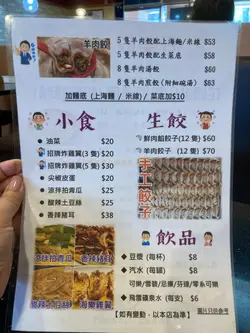 羊肉餃
5 隻羊肉餃配上海麵/米線 $53
5 隻羊肉餃配生菜底 $58
8 隻羊肉湯餃 $60
8 隻羊肉煎餃(附細碗湯) $63
加麵底 (上海麵 / 米線) / 菜底加$10
小食
油菜 $20
招牌炸雞翼(3 隻) $20
招牌炸雞翼(5 隻) $30
尖椒皮蛋 $20
涼拌拍青瓜 $20
酸辣土豆絲 $20
香辣豬耳 $38
生餃
鮮肉餡餃子(12 隻) $60
羊肉餃子 (12 隻) $70
手工餃子
涼拌拍青瓜
香辣豬耳
酸辣土豆絲
飲品
豆漿 (每杯) $8
汽水 (每罐) $8
可樂/雪碧/忌廉/芬達/零系可樂
飛雪礦泉水 (每支) $6
圖片只供參考
【如有變動,以本店為準】